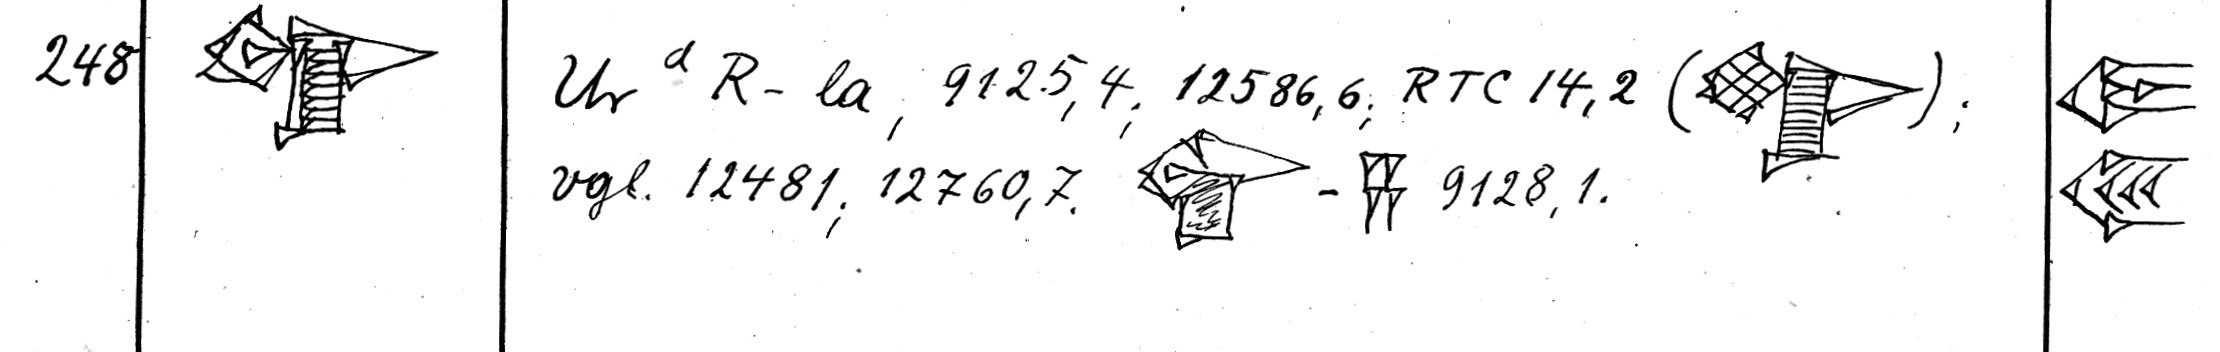 248 Ur ᵈ R - la, 9125,4; 12586,6; RTC 14,2 ( );
vgl. 12481; 12760,7. - 9128,1.